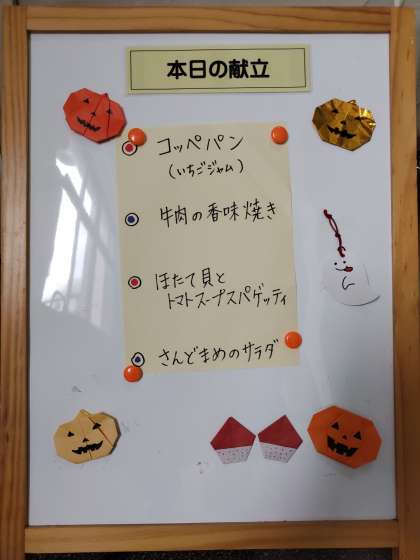 本日の献立
コッペパン
(いちごジャム)
牛肉の香味焼き
ほたて貝と
トマトスープスパゲッティ
さんどまめのサラダ